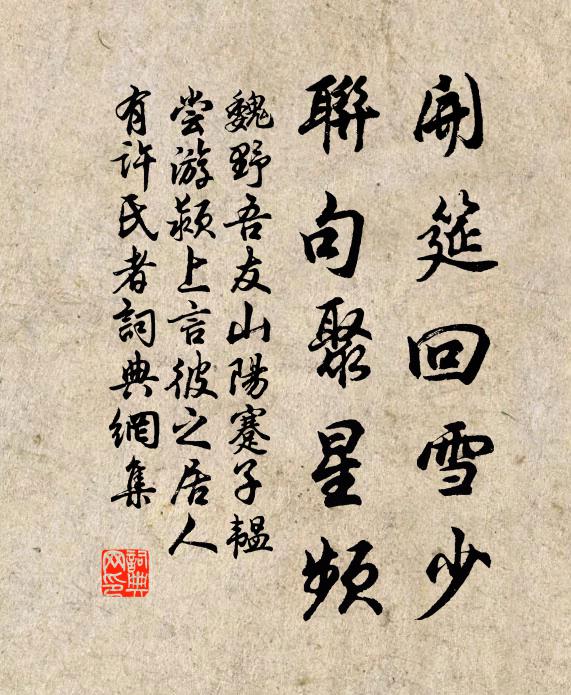 開筵回雪少
聯句聚星頻
魏野吾友山陽蹇子韞
尝游颍上言彼之居人
有許氏者詞典網集
詞典网印